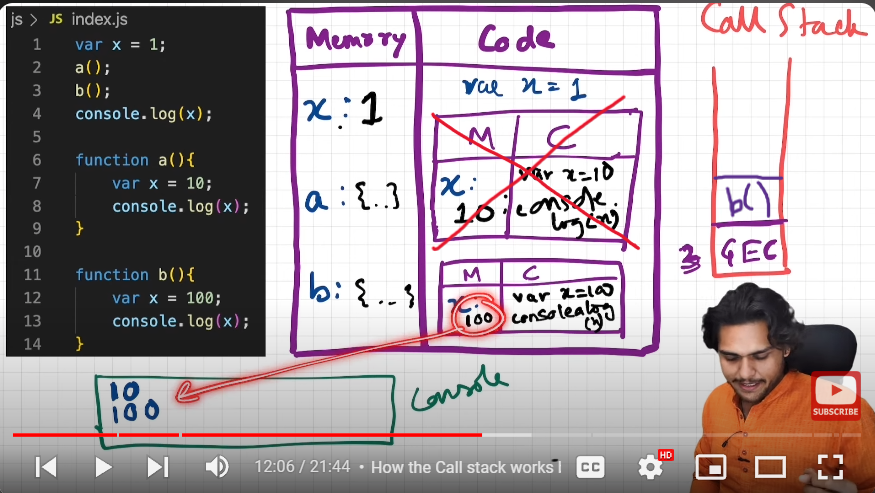 js > JS index.js
1 var x = 1;
2 a();
3 b();
4 console.log(x);
5
6 function a(){
7 var x = 10;
8 console.log(x);
9 }
10
11 function b(){
12 var x = 100;
13 console.log(x);
14 }
Memory
Code
x : 1
a : {..}
b : {...}
var x = 1
M
C
x:
10
var x=10
console.
log(x)
M
C
x:
100
var x=100
console.log
(x)
Call Stack
b()
GEC
10
100
Console
SUBSCRIBE
12:06 / 21:44 • How the Call stack works I
CC
HD